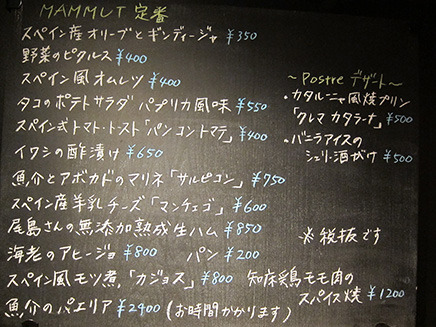 MAMMUT 定番
スペイン産オリーブとギンディージャ ¥350
野菜のピクルス ¥400
スペイン風オムレツ ¥400
タコのポテトサラダ パプリカ風味 ¥550
スペイン式トマト・トースト「パンコントマテ」 ¥400
イワシの酢漬け ¥650
魚介とアボカドのマリネ「サルピコン」 ¥750
スペイン産羊乳チーズ「マンチェゴ」 ¥600
尾島さんの無添加熟成生ハム ¥850
海老のアヒージョ ¥800 パン ¥200
スペイン風モツ煮,「カジョス」 ¥800
魚介のパエリア ¥2900 (お時間かかります)
〜Postre デザート〜
・カタルーニャ風焼プリン
「クレマカタラーナ」 ¥500
・バニラアイスの
シェリー酒がけ ¥500
※税抜です
知床鶏モモ肉の
スパイス焼 ¥1200